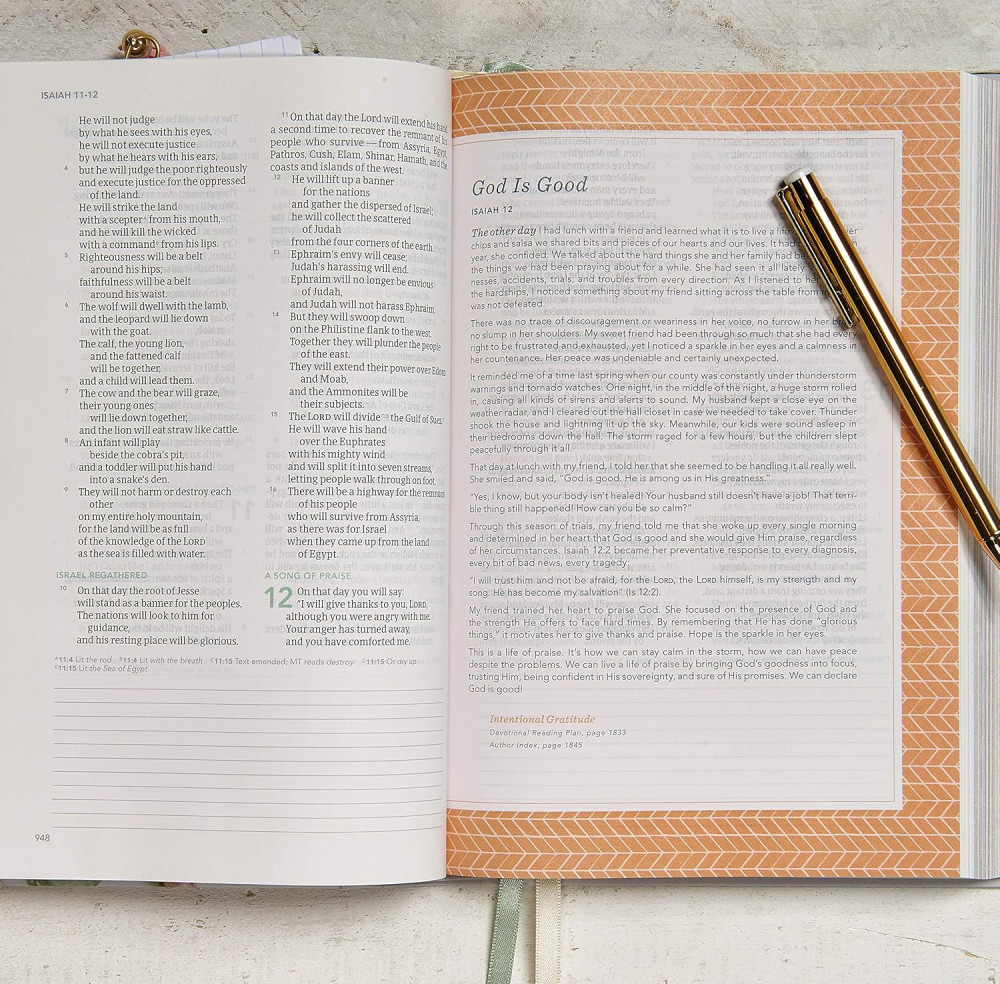 ISAIAH 11-12
He will not judge
by what he sees with his eyes,
he will not execute justice
by what he hears with his ears,
4 but he will judge the poor righteously
and execute justice for the oppressed
of the land.
He will strike the land
with a scepter^A from his mouth,
and he will kill the wicked
with a command^B from his lips.
5 Righteousness will be a belt
around his hips;
faithfulness will be a belt
around his waist.
6 The wolf will dwell with the lamb,
and the leopard will lie down
with the goat.
The calf, the young lion,
and the fattened calf
will be together,
and a child will lead them.
7 The cow and the bear will graze,
their young ones
will lie down together,
and the lion will eat straw like cattle.
8 An infant will play
beside the cobra's pit,
and a toddler will put his hand
into a snake's den.
9 They will not harm or destroy each
other
on my entire holy mountain,
for the land will be as full
of the knowledge of the LORD
as the sea is filled with water.
ISRAEL REGATHERED
10 On that day the root of Jesse
will stand as a banner for the peoples.
The nations will look to him for
guidance,
and his resting place will be glorious.
11 On that day the Lord will extend his hand
a second time to recover the remnant of his
people who survive — from Assyria, Egypt,
Pathros, Cush, Elam, Shinar, Hamath, and the
coasts and islands of the west.
12 He will lift up a banner
for the nations
and gather the dispersed of Israel;
he will collect the scattered
of Judah
from the four corners of the earth.
13 Ephraim's envy will cease;
Judah's harassing will end.
Ephraim will no longer be envious
of Judah,
and Judah will not harass Ephraim.
14 But they will swoop down
on the Philistine flank to the west.
Together they will plunder the people
of the east.
They will extend their power over Edom
and Moab,
and the Ammonites will be
their subjects.
15 The LORD will divide the Gulf of Suez.
He will wave his hand
over the Euphrates
with his mighty wind
and will split it into seven streams,
letting people walk through on foot.
16 There will be a highway for the remnant
of his people
who will survive from Assyria,
as there was for Israel
when they came up from the land
of Egypt.
A SONG OF PRAISE
12 On that day you will say:
"I will give thanks to you, LORD,
although you were angry with me.
Your anger has turned away,
and you have comforted me.
^A11:4 Lit the rod ^B11:4 Lit with the breath ^C11:15 Text emended; MT reads destroy ^D11:15 Or dry up
^E11:15 Lit the Sea of Egypt
948
God Is Good
ISAIAH 12
The other day I had lunch with a friend and learned what it is to live a over
chips and salsa we shared bits and pieces of our hearts and our lives. It had
year, she confided. We talked about the hard things she and her family had
the things we had been praying about for a while. She had seen it all lately:
nesses, accidents, trials, and troubles from every direction. As I listened to
the hardships, I noticed something about my friend sitting across the table from
was not defeated.
There was no trace of discouragement or weariness in her voice, no furrow in her
no slump in her shoulders. My sweet friend had been through so much that she had every
right to be frustrated and exhausted, yet I noticed a sparkle in her eyes and a calmness in
her countenance. Her peace was undeniable and certainly unexpected.
It reminded me of a time last spring when our county was constantly under thunderstorm
warnings and tornado watches. One night, in the middle of the night, a huge storm rolled
in, causing all kinds of sirens and alerts to sound. My husband kept a close eye on the
weather radar, and I cleared out the hall closet in case we needed to take cover. Thunder
shook the house and lightning lit up the sky. Meanwhile, our kids were sound asleep in
their bedrooms down the hall. The storm raged for a few hours, but the children slept
peacefully through it all.
That day at lunch with my friend, I told her that she seemed to be handling it all really well.
She smiled and said, "God is good. He is among us in His greatness."
"Yes, I know, but your body isn't healed! Your husband still doesn't have a job! That terri-
ble thing still happened! How can you be so calm?"
Through this season of trials, my friend told me that she woke up every single morning
and determined in her heart that God is good and she would give Him praise, regardless
of her circumstances. Isaiah 12:2 became her preventative response to every diagnosis,
every bit of bad news, every tragedy:
"I will trust him and not be afraid, for the LORD, the LORD himself, is my strength and my
song. He has become my salvation" (Is 12:2).
My friend trained her heart to praise God. She focused on the presence of God and
the strength He offers to face hard times. By remembering that He has done "glorious
things," it motivates her to give thanks and praise. Hope is the sparkle in her eyes.
This is a life of praise. It's how we can stay calm in the storm, how we can have peace
despite the problems. We can live a life of praise by bringing God's goodness into focus,
trusting Him, being confident in His sovereignty, and sure of His promises. We can declare
God is good!
Intentional Gratitude
Devotional Reading Plan, page 1833
Author Index, page 1845